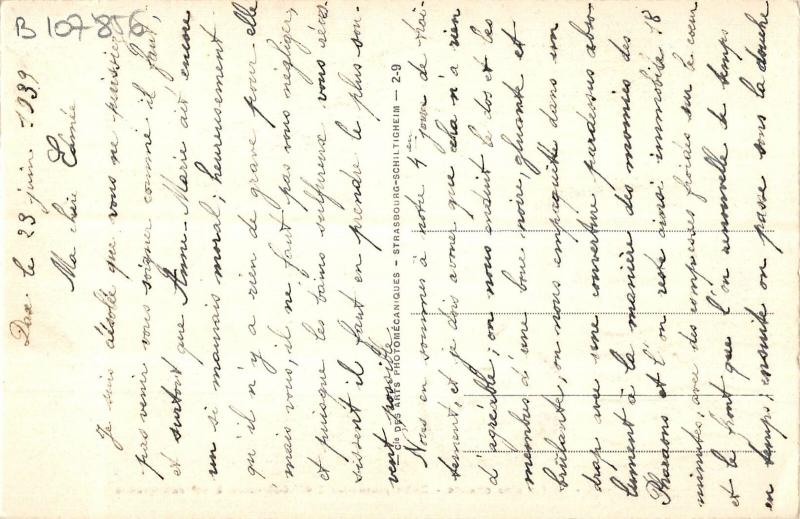 B 107856
Dax le 23 juin 1939
Ma chère Edmée
Je suis désolée que vous ne puissiez
pas venir vous soigner comme il faut,
et surtout que Anne-Marie ait encore
un si mauvais moral; heureusement
qu'il n'y a rien de grave pour elle
mais vous, il ne faut pas vous négliger,
et puisque les bains sulfureux vous réus-
sissent il faut en prendre le plus sou-
vent possible.
Cie DES ARTS PHOTOMÉCANIQUES - STRASBOURG-SCHILTIGHEIM - 2-9
Nous en sommes à notre 4en jour de trai-
tement, et je dois avouer que cela n'a rien
d'agréable; on nous enduit le dos et les
membres d'une boue noire, gluante et
brûlante, on nous empaquète dans un
drap avec une couverture pardessus abso-
lument à la manière des momies des
Pharaons et l'on reste ainsi immobile 18
minutes, avec des compresses froides sur le coeur
et le front que l'on renouvelle de temps
en temps; ensuite on passe sous la douche